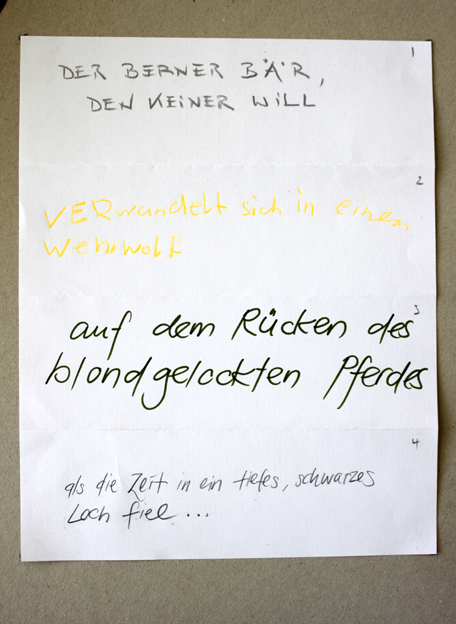 1
DER BERNER BÄR,
DEN KEINER WILL
2
VERwandelt sich in einen
Wehrwolf
3
auf dem Rücken des
blondgelockten Pferdes
4
als die Zeit in ein tiefes, schwarzes
Loch fiel...